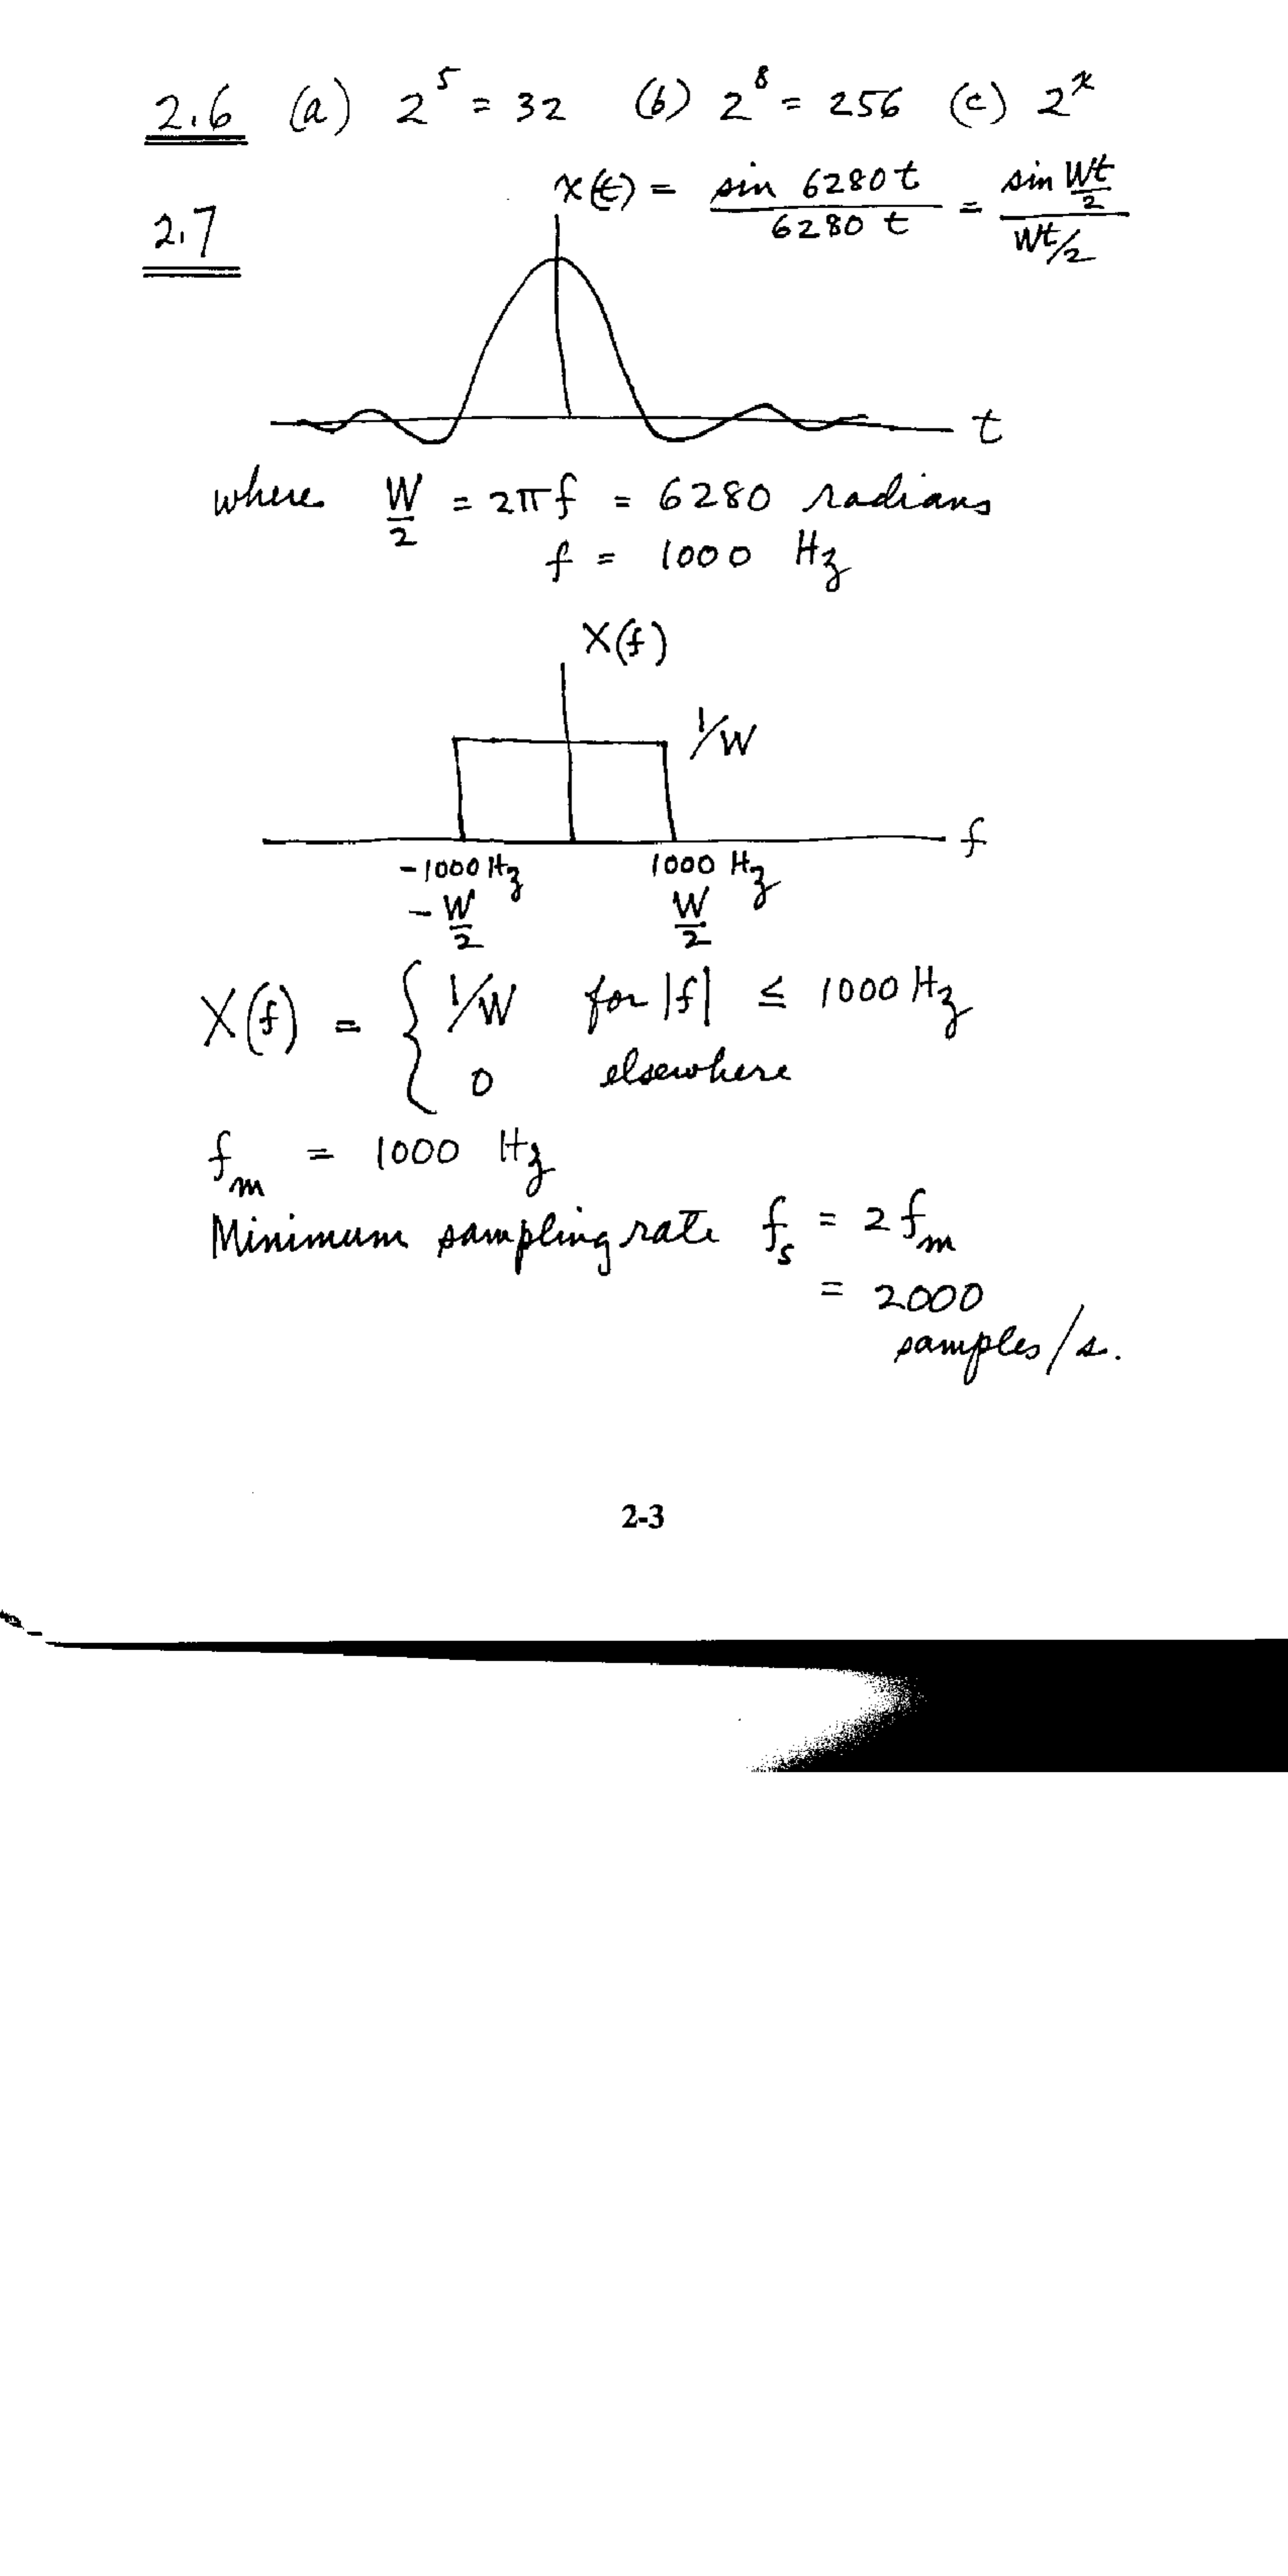 2.6 (a) 2^5 = 32 (b) 2^8 = 256 (c) 2^x
2.7 x(t) = sin 6280 t / 6280 t = sin Wt/2 / Wt/2
t
where W/2 = 2πf = 6280 radians
f = 1000 Hz
X(f)
1/W
f
-1000 Hz 1000 Hz
-W/2 W/2
X(f) = { 1/W for |f| ≤ 1000 Hz
0 elsewhere
f_m = 1000 Hz
Minimum sampling rate f_s = 2 f_m
= 2000
samples/s.
2-3